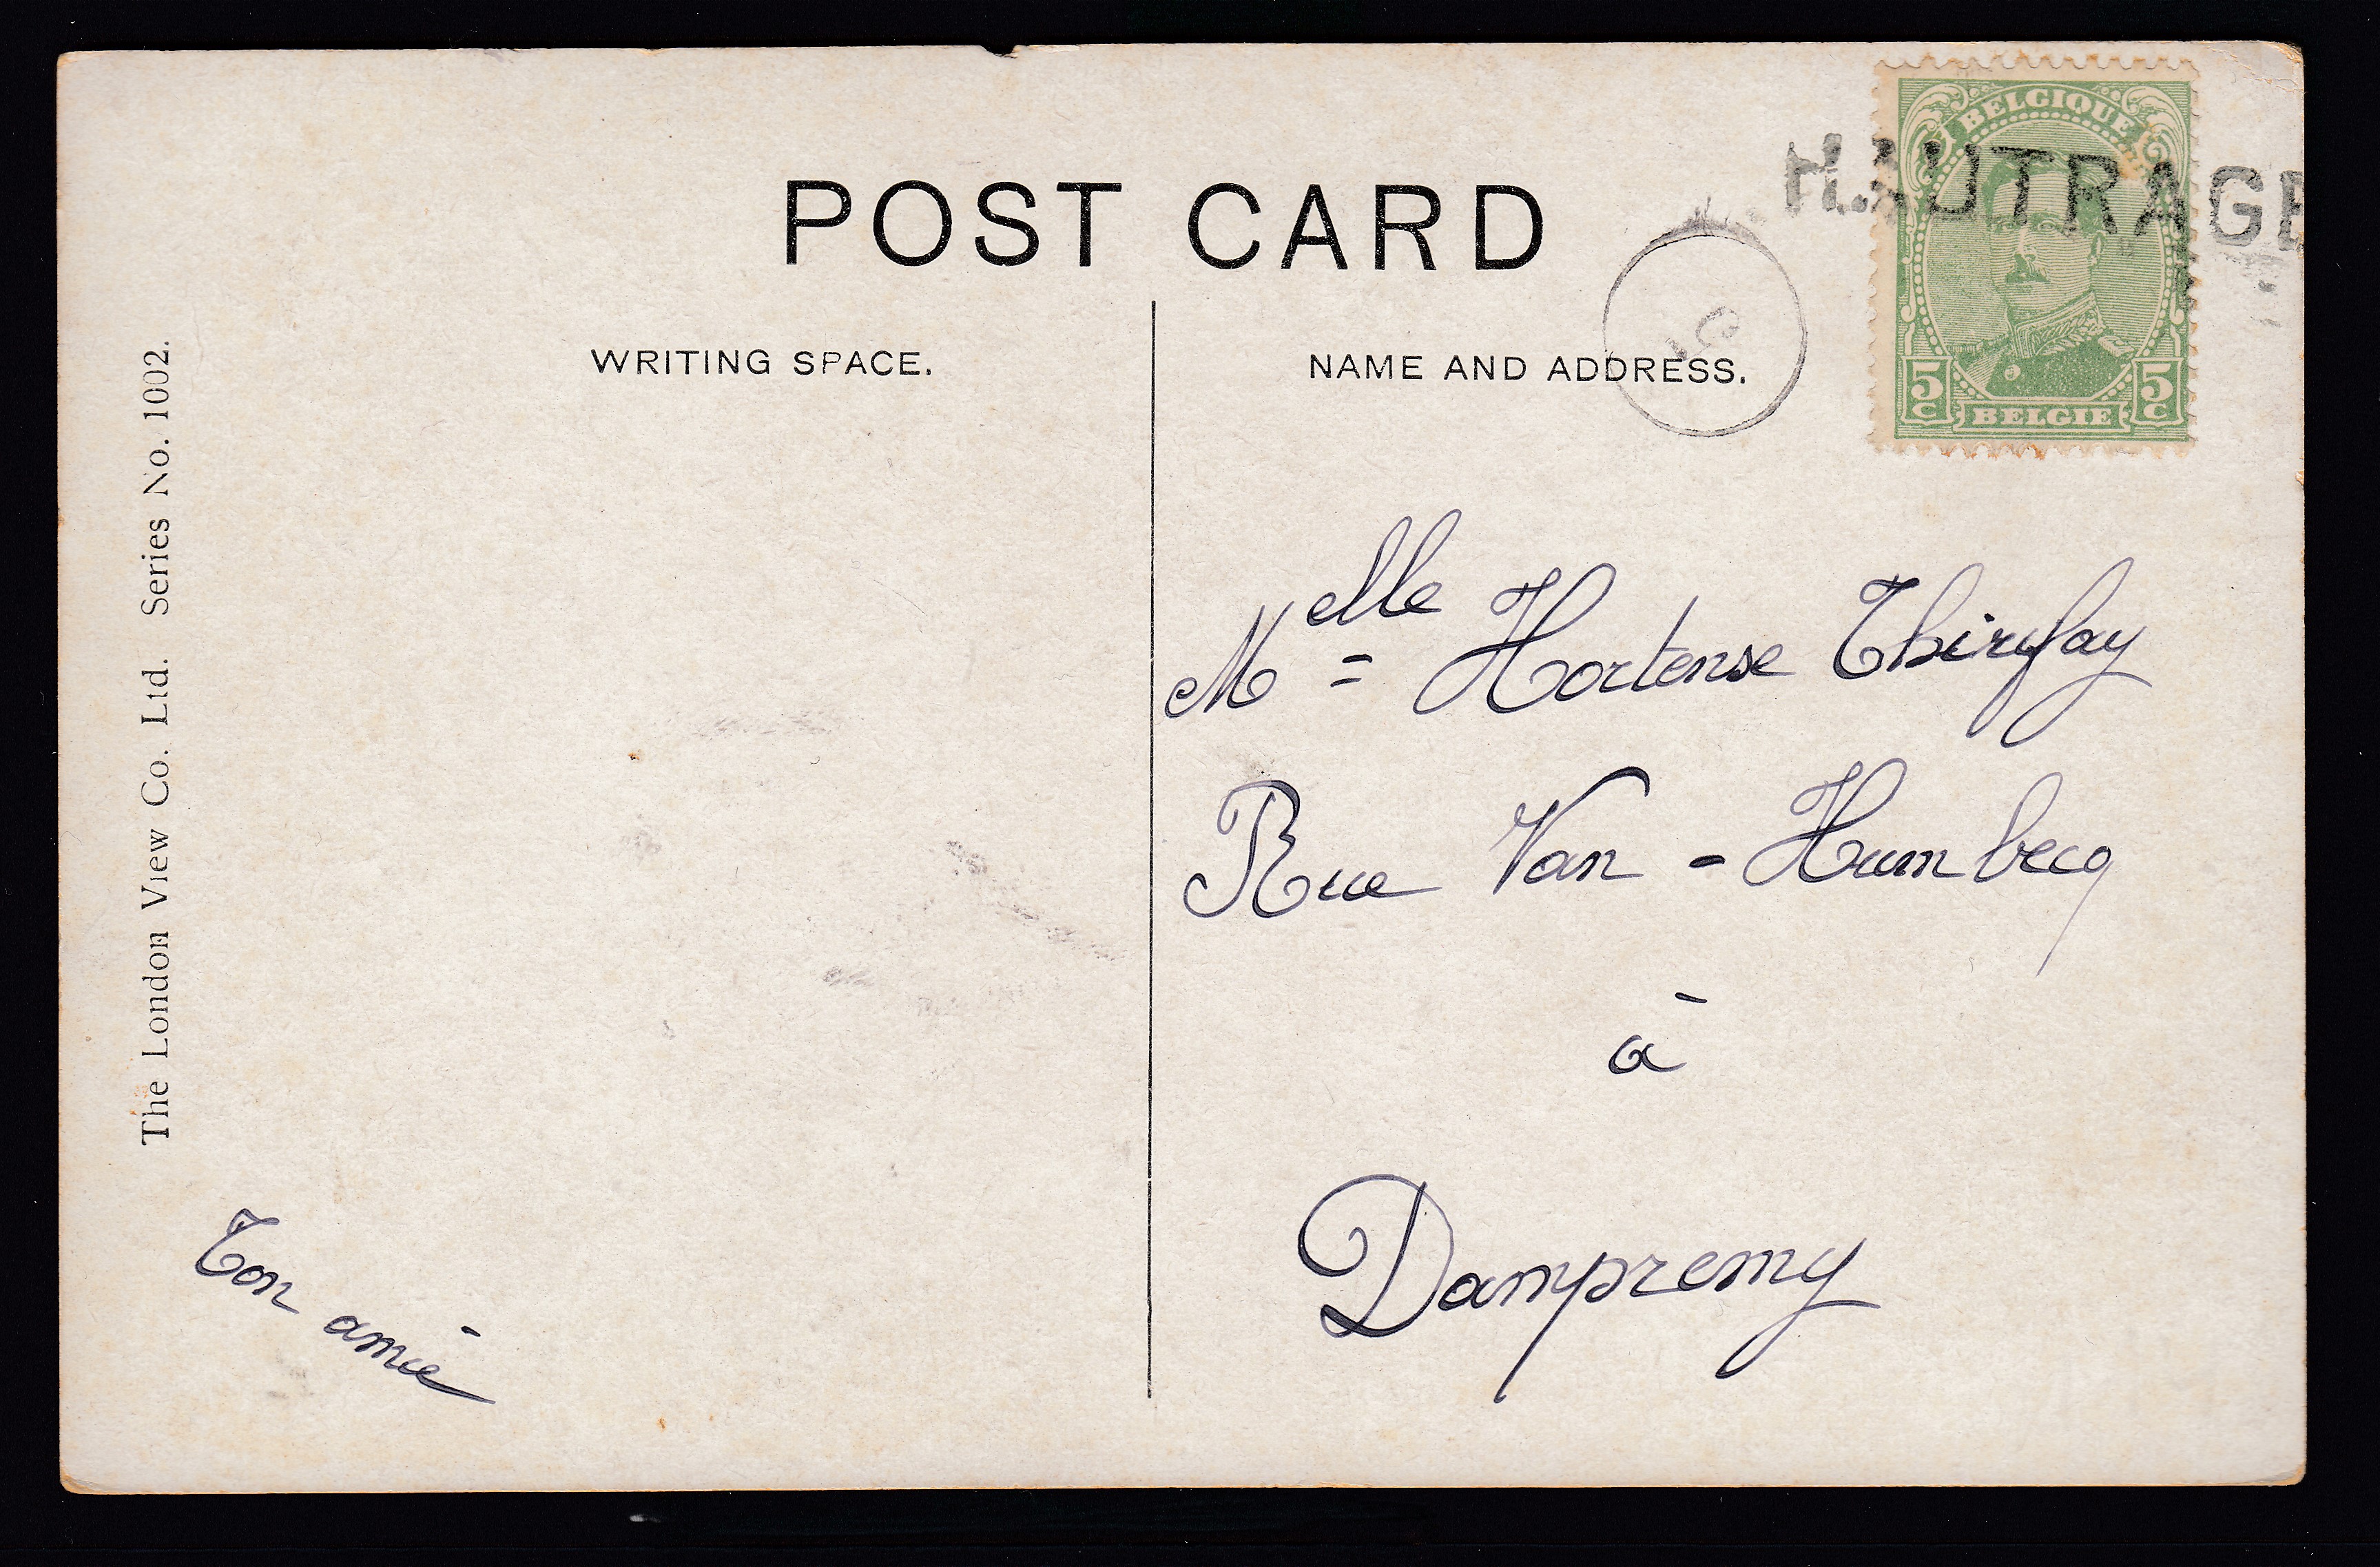 POST CARD
WRITING SPACE.
NAME AND ADDRESS.
The London View Co. Ltd. Series No. 1002.
BELGIQUE
HAUTRAGE
5c BELGIE 5c
Melle Hortense Thirifay
Rue Van - Humbecq
à
Dampremy
Ton amie